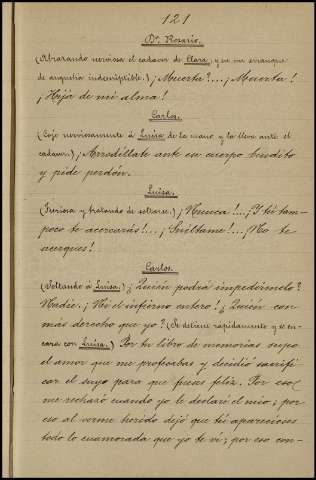 121
Dª Rosario.
(Abrazando nerviosa el cadáver de Clara, y en un arranque
de angustia indescriptible.) ¡Muerta?... ¡Muerta!
¡Hija de mi alma!
Carlos.
(Coje nerviosamente á Luisa de la mano y la lleva ante el
cadáver.) ¡Arrodíllate ante su cuerpo bendito
y pide perdón.
Luisa.
(Furiosa y tratando de soltarse.) ¡Nunca!... ¡Y tú tam-
poco te acercarás!... ¡Suéltame!... ¡No te
acerques!
Carlos.
(Soltando á Luisa.) ¿Quién podrá impedírmelo?
Nadie. ¡Ni el infierno entero! ¿Quién con
más derecho que yo? (Se detiene rápidamente y se en-
cara con Luisa.) Por tu libro de memorias supo
el amor que me profesabas y decidió sacrifi
car el suyo para que fueses feliz. Por eso
me rechazó cuando yo le declaré el mio; por
eso al verme herido dejó que tú aparecieses
todo lo enamorada que yo te ví; por eso con-